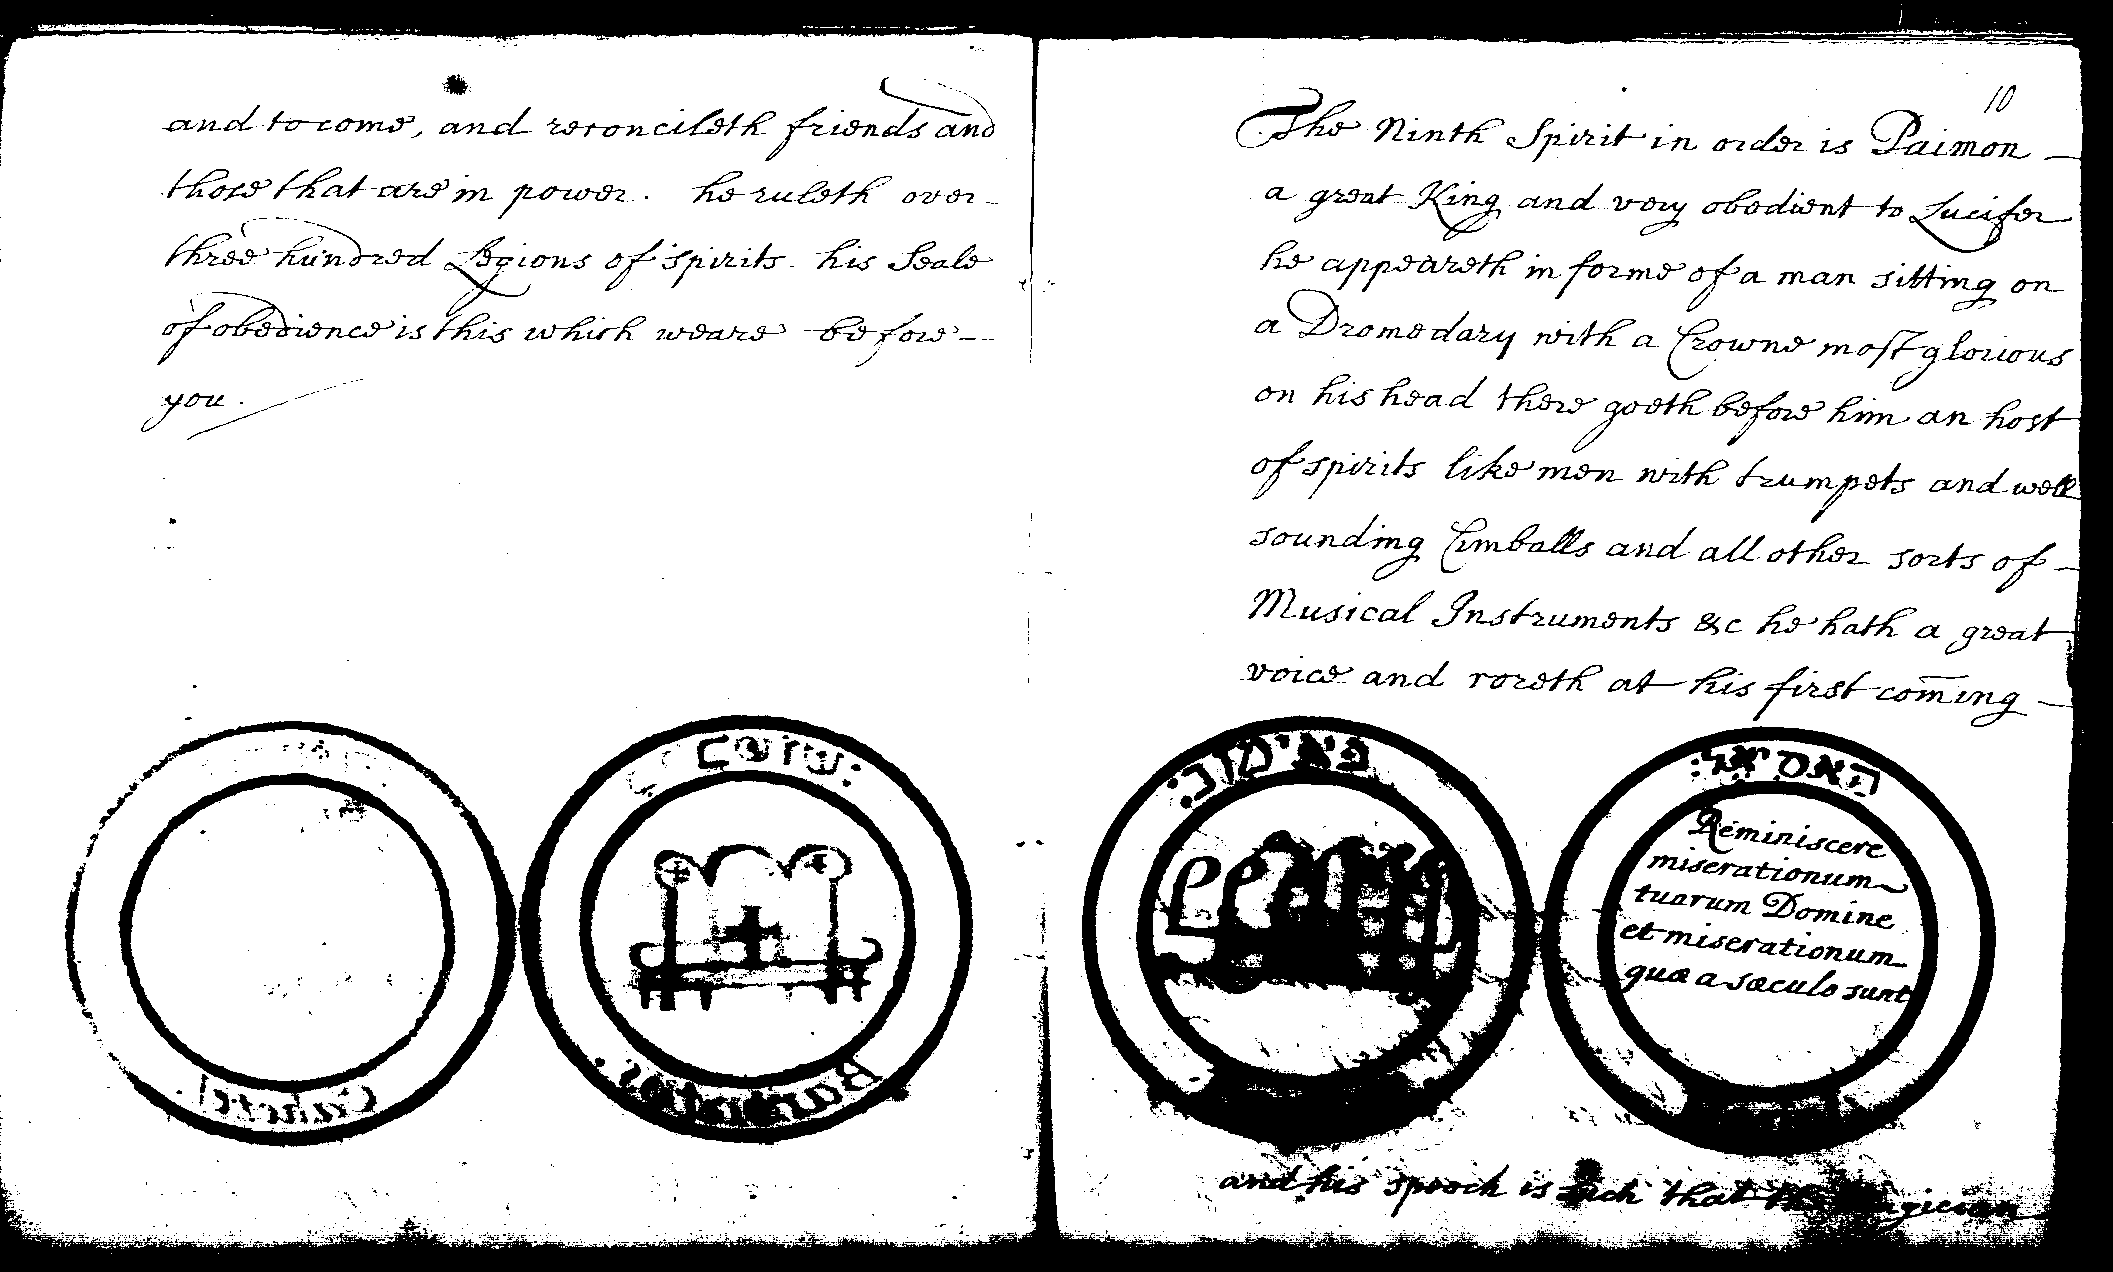 and to come, and reconcileth friends and
those that are in power. he ruleth over
three hundred Legions of spirits his Seale
of obedience is this which weare before
you.
Barbatos.
10
The Ninth Spirit in order is Paimon
a great King and very obedient to Lucifer
he appeareth in forme of a man sitting on
a Dromedary with a Crowne most glorious
on his head there goeth before him an host
of spirits like men with trumpets and well
sounding Cimballs and all other sorts of
Musical Instruments &c he hath a great
voice and roreth at his first com̄ing
פאימונ:
האסיאל:
Reminiscere
miserationum
tuarum Domine
et miserationum
quæ a sæculo sunt
and his speech is such that the Magician